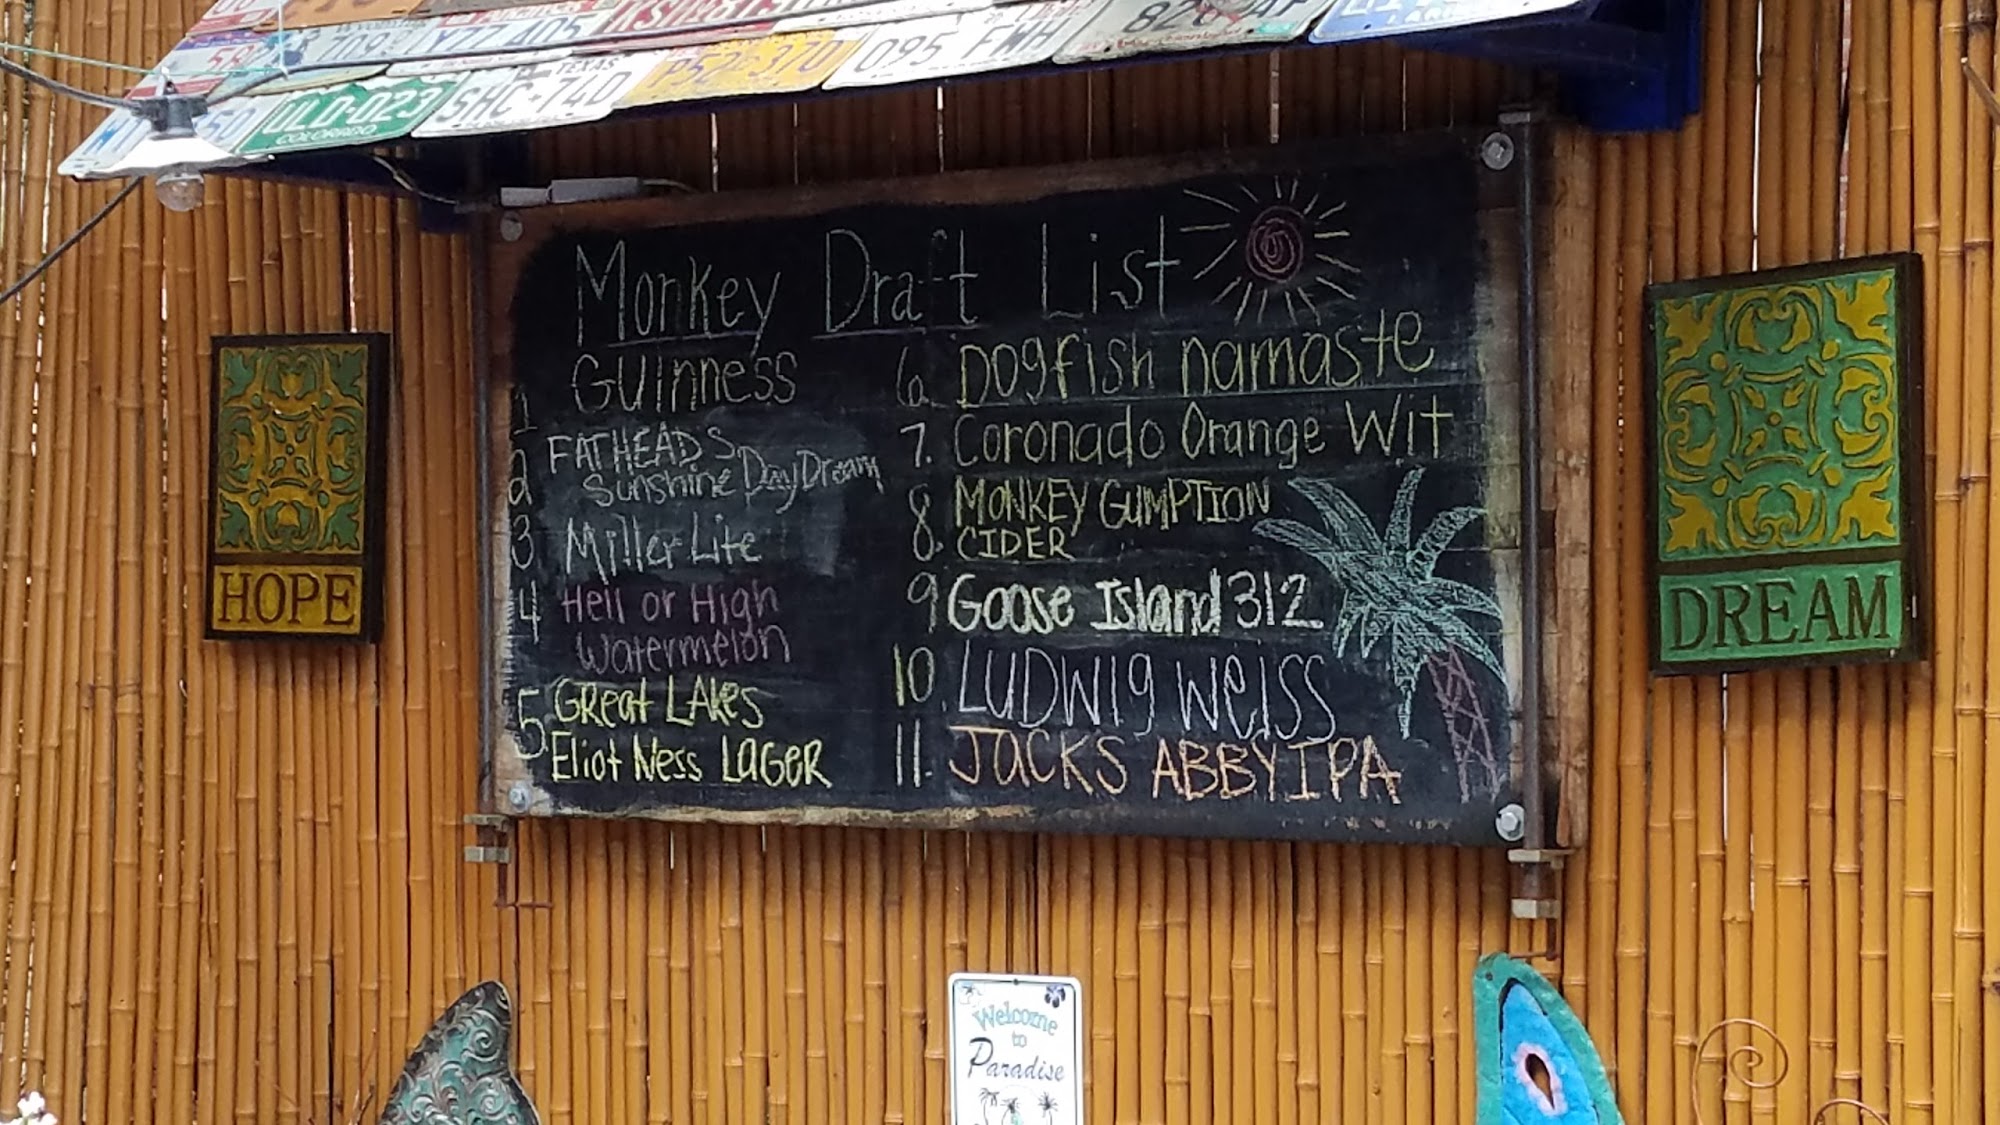 709
Y77 405
TEXAS
SHC·74D
P52 370
095 FWH
ULD-D23
COLORADO
Monkey Draft List
1 Guinness
2 FATHEADS
Sunshine DayDream
3 Miller Lite
4 Hell or High
Watermelon
5 Great Lakes
Eliot Ness Lager
6. Dogfish namaste
7. Coronado Orange Wit
8. MONKEY GUMPTION
CIDER
9 Goose Island 312
10. LUDWIG Weiss
11. JACKS ABBY IPA
HOPE
DREAM
Welcome
to
Paradise